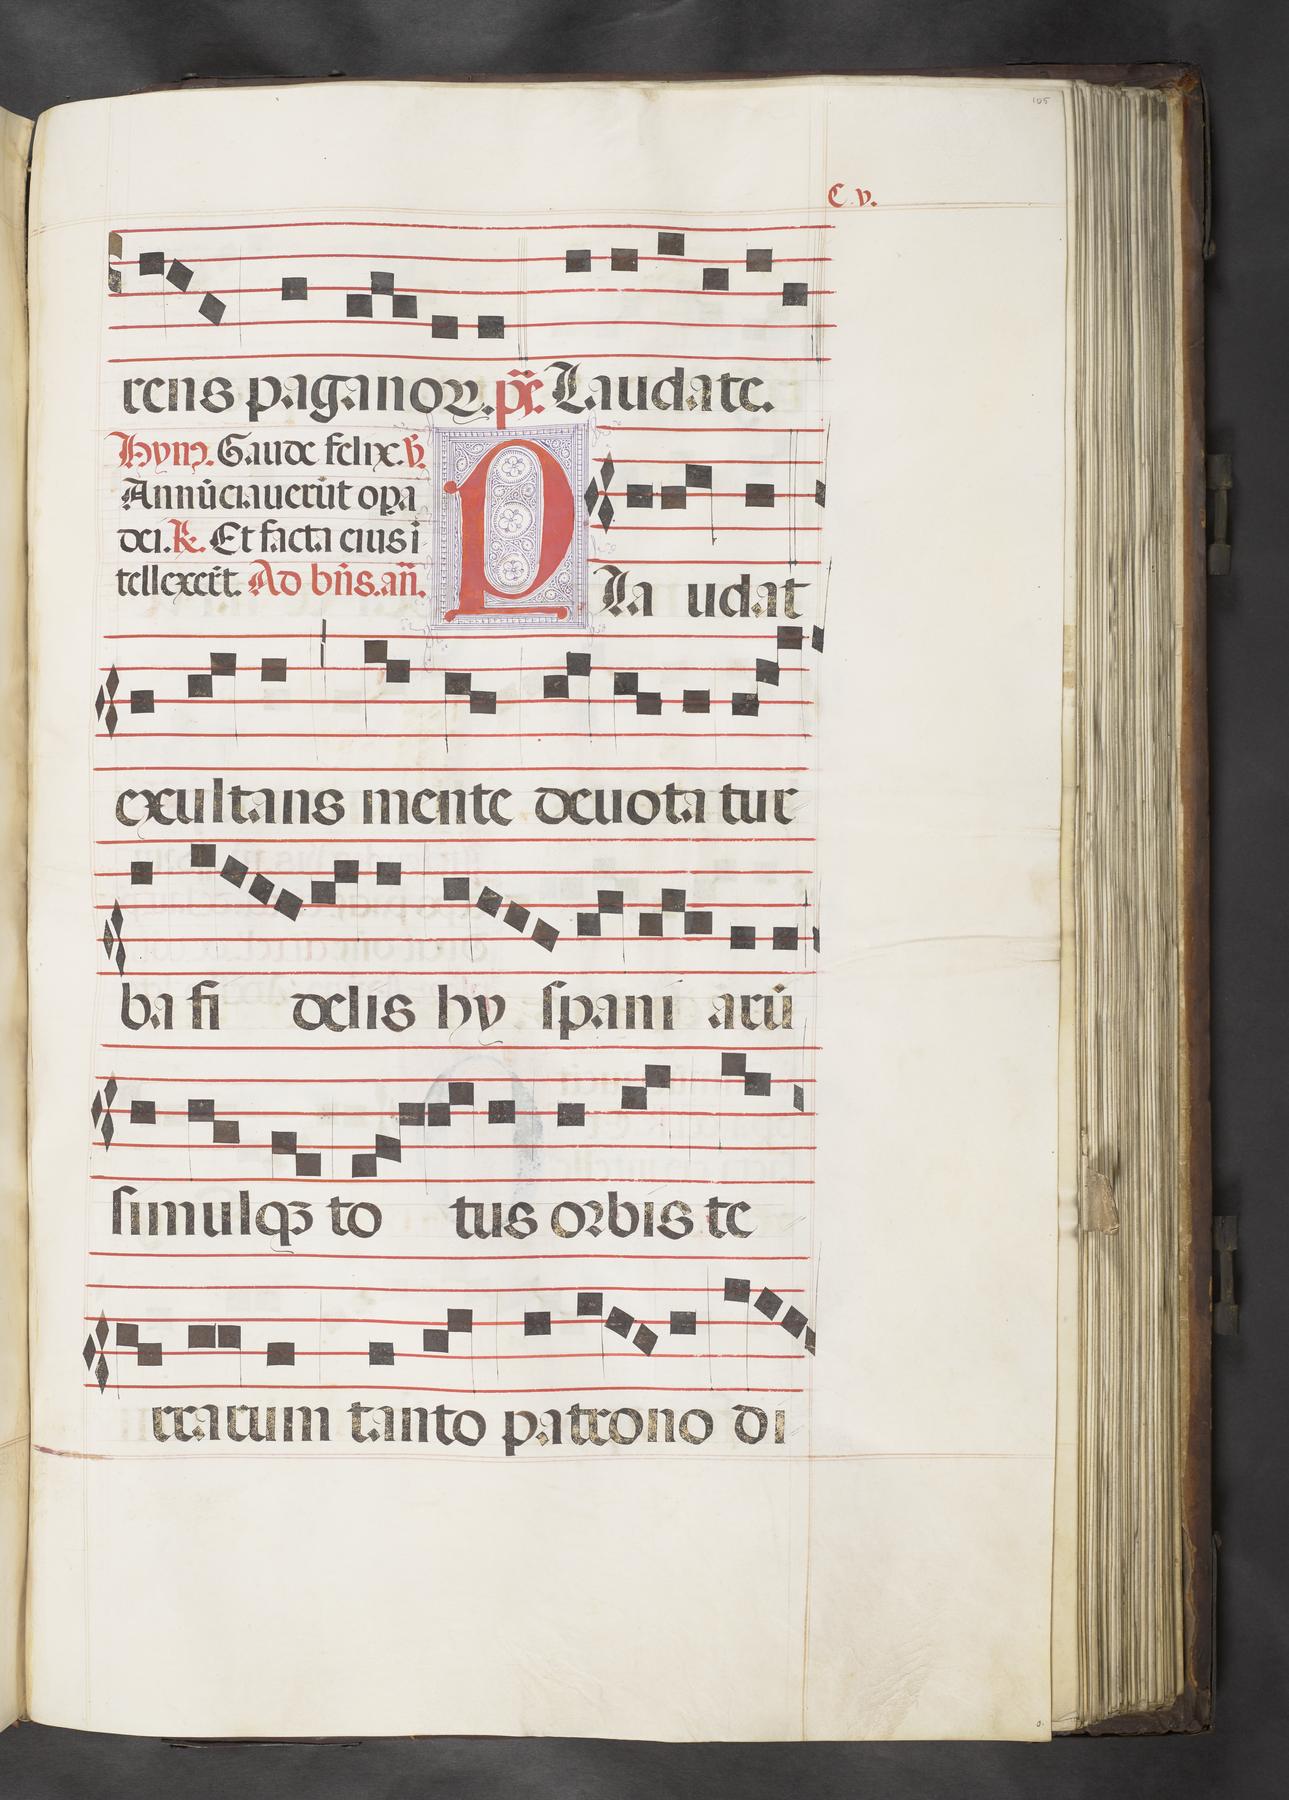 105
C.v.
rens paganoꝝ. ps̃. Laudate.
Hym̃. Gaude felix. ℣.
Annũciauerũt opa
dei. ℟. Et facta eius i
tellexerũt. Ad bñs. añ.
P
la udat
exultans mente deuota tur
ba fi delis hy spani arũ
simulqꝫ to tus orbis te
rrarum tanto patrono di